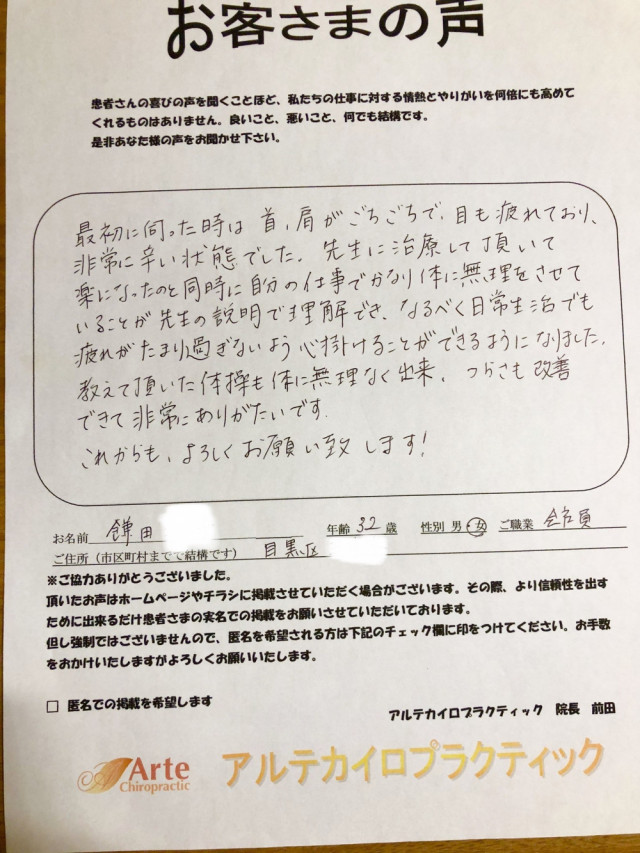 お客さまの声
患者さんの喜びの声を聞くことほど、私たちの仕事に対する情熱とやりがいを何倍にも高めて
くれるものはありません。良いこと、悪いこと、何でも結構です。
是非あなた様の声をお聞かせ下さい。
最初に伺った時は首、肩がごちごちで、目も疲れており、
非常に辛い状態でした。先生に治療して頂いて
楽になったのと同時に自分の仕事でかなり体に無理をさせて
いることが先生の説明で理解でき、なるべく日常生活でも
疲れがたまり過ぎないよう心掛けることができるようになりました。
教えて頂いた体操も体に無理なく出来、つらさも改善
できて非常にありがたいです。
これからも、よろしくお願い致します!
お名前 鎌田 年齢 32 歳 性別 男・女 ご職業 会社員
ご住所(市区町村までで結構です) 目黒区
※ご協力ありがとうございました。
頂いたお声はホームページやチラシに掲載させていただく場合がございます。その際、より信頼性を出す
ために出来るだけ患者さまの実名での掲載をお願いさせていただいております。
但し強制ではございませんので、匿名を希望される方は下記のチェック欄に印をつけてください。お手数
をおかけいたしますがよろしくお願いいたします。
□ 匿名での掲載を希望します
アルテカイロプラクティック 院長 前田
Arte
Chiropractic
アルテカイロプラクティック